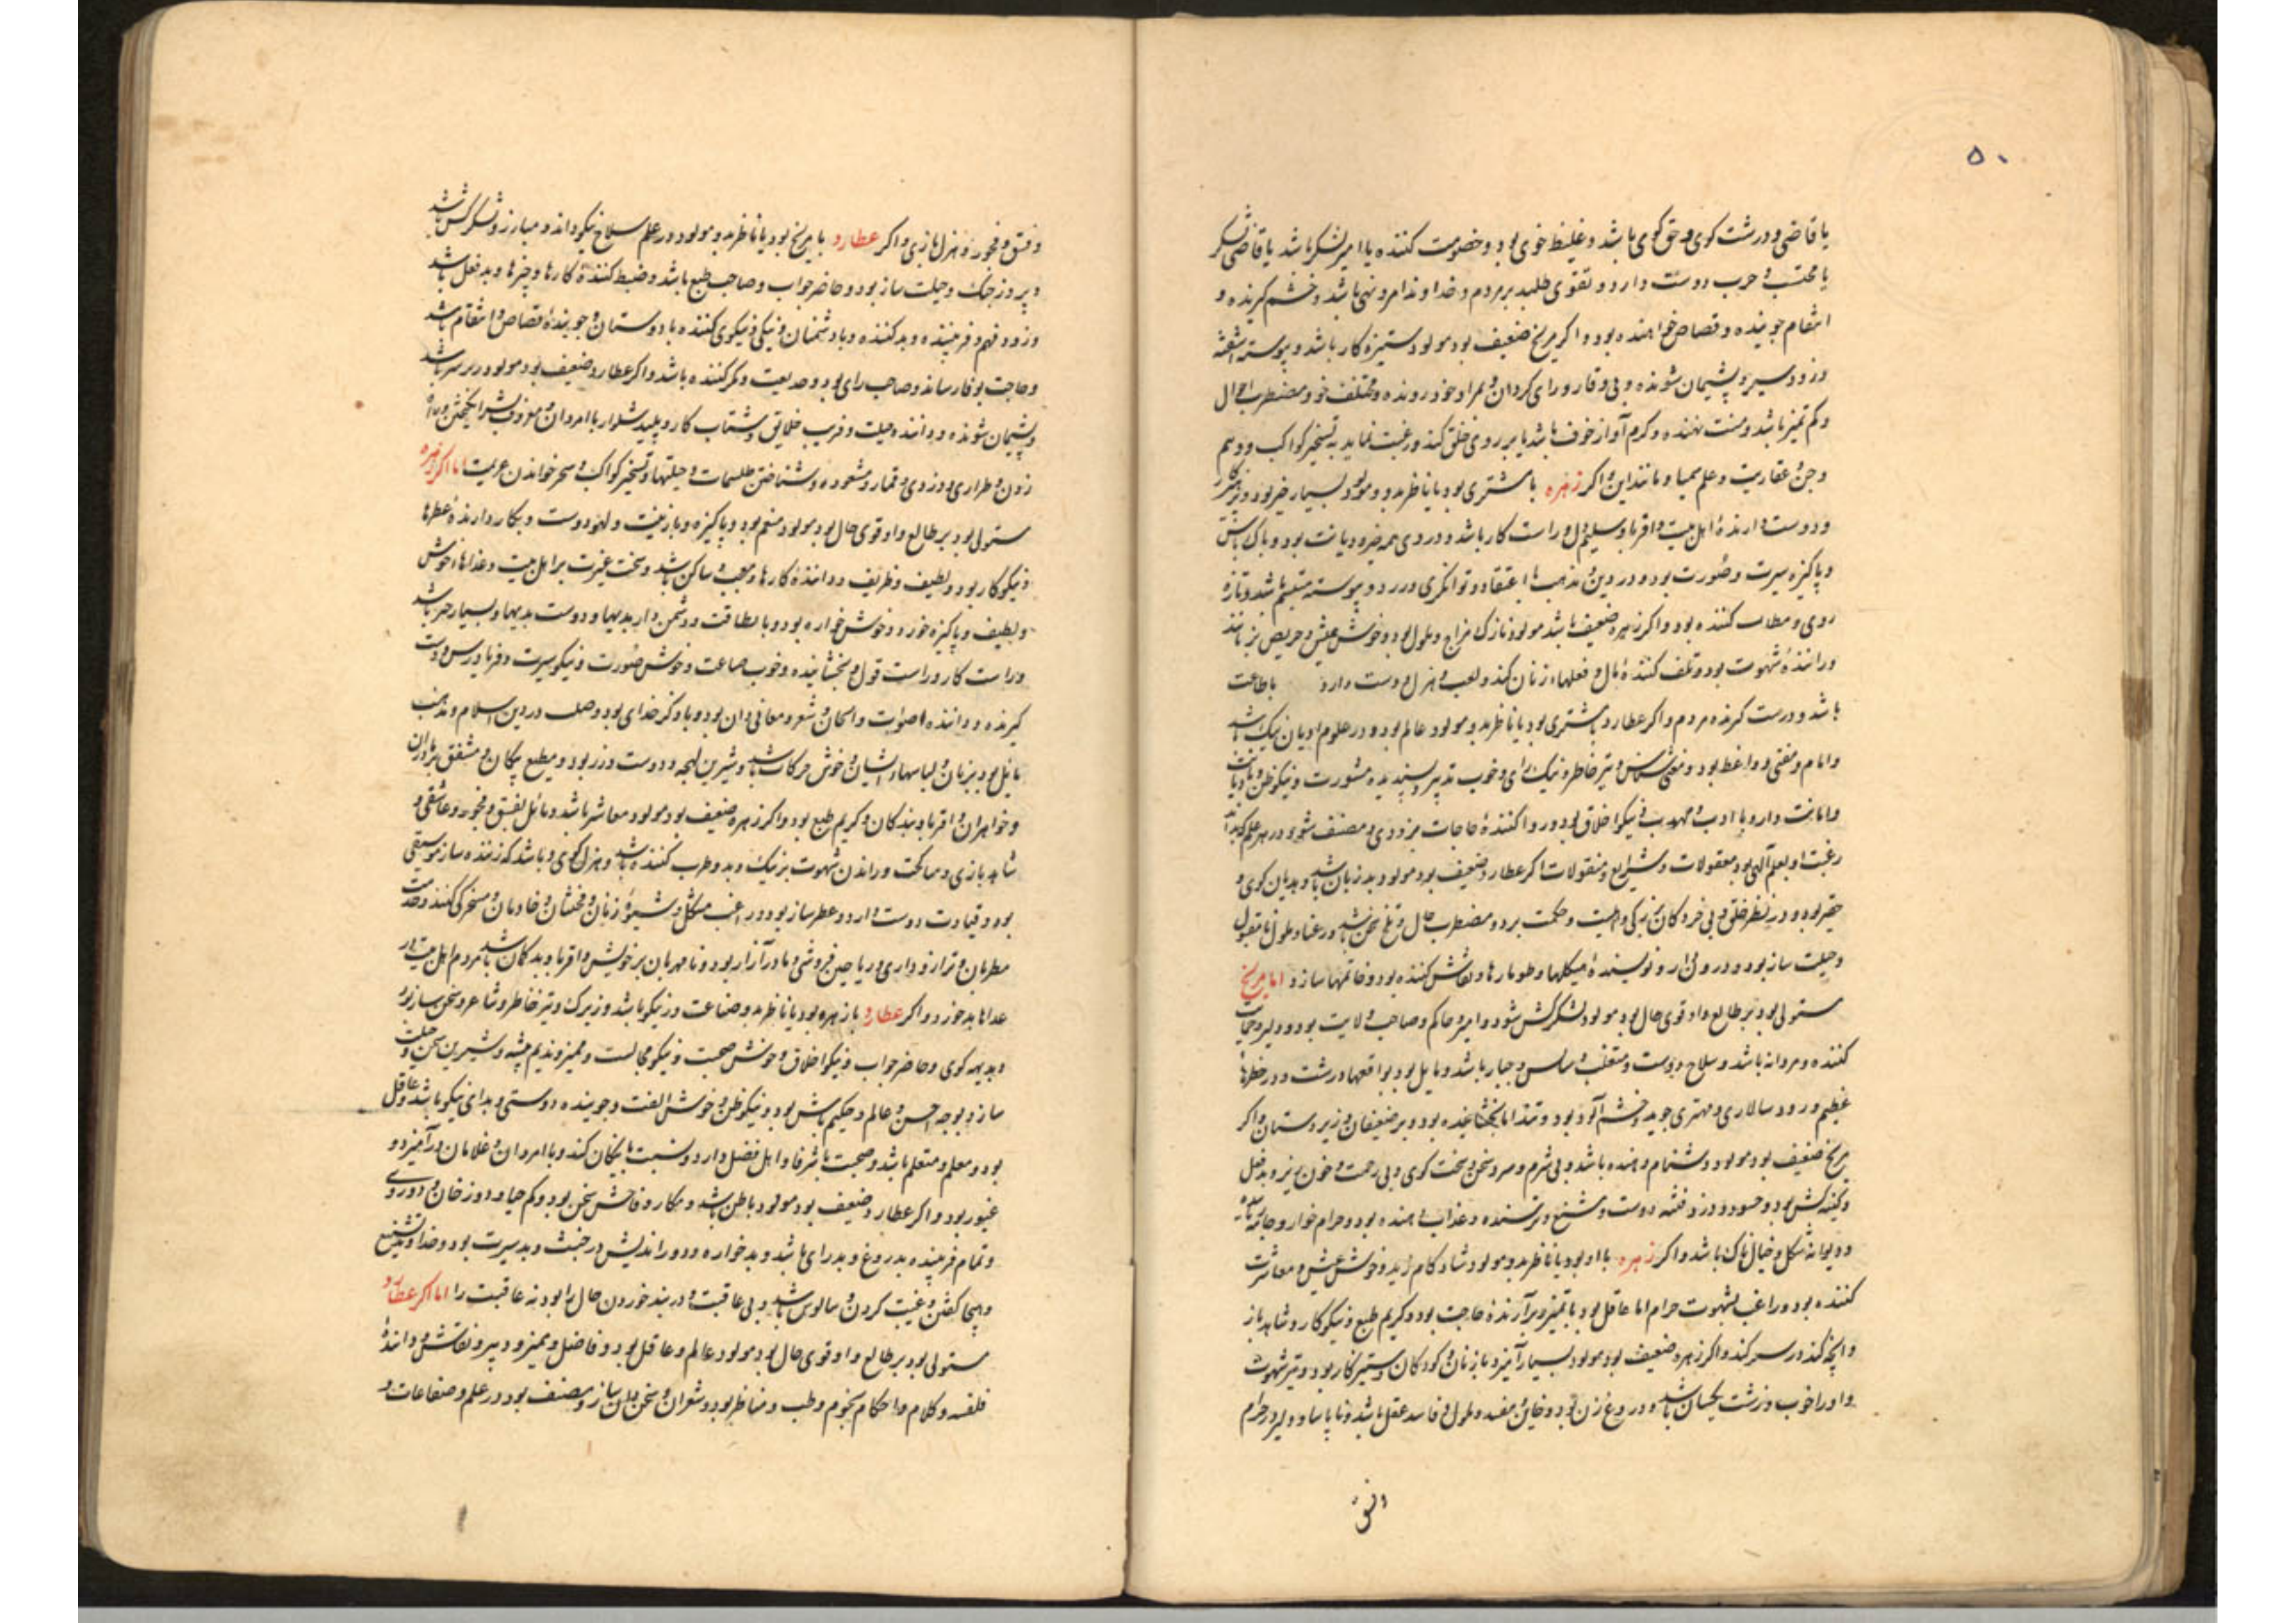 ۵۰
یا قاضی و درشت کوی و حق کوی باشد و غلیظ خوی بود و خصومت کننده یا امیر لشکر باشد یا قاضی لشکر
یا محتسب و حرب دوست دارد و تقوی طلبد بر مردم و خداوند امر و نهی باشد و خشم کیرنده و
انتقام جوینده و قصاص خواهنده بود و اکر مریخ ضعیف بود مولود ستیزه کار باشد و پیوسته آشفته
و زود سیر و پشیمان شونده و بی وقار و رای کردان و بمراد خود رونده و مختلف خو و مضطرب احوال
و کم تمیز باشد و منت نهنده و کرم آواز خوف باشد یا بر روی خلق کند و رغبت نماید به تسخیر کواکب و وهم
و جن و عفاریت و علم سیمیا و مانند این و اکر زهره با مشتری بود یا ناظر بدو مولود بسیار خیر بود و پرهیزکار
و دوست دارندهٔ اهل بیت و اقربا و سلیم دل و راست کار باشد و در وی همه خیر و دیانت بود و پاک باش
و پاکیزه سیرت و صورت بود و در دین و مذهب با اعتقاد و توانکری ورزد و پیوسته متبسّم باشد و تازه
روی و کننده بود و اکر زهره ضعیف باشد مولود نازک مزاج و ملول بود و خوش عیش و حریص بر
و رانندهٔ شهوت بود و تلف کنندهٔ مال و فعلهاء زنان کند و لعب و هزل دوست دارد با طاعت
باشد و درست کرنده مردم و اکر عطارد با مشتری بود یا ناظر بدو مولود عالم بود و در علوم ادیان نیک باشد
و امام و مفتی و واعظ بود و معنی شناس و تیز خاطر و نیک رای و خوب تدبیر و پسندیده مشورت و نیکو ظن و دیانت
و امانت دارد با ادب و مهذب و نیکو اخلاق بود و روا کنندهٔ حاجات بزودی و مصنف شود در هر علم که بداند
رغبت او بعلم آلهی بود معقولات و شرایع و منقولات اکر عطارد ضعیف بود مولود بد زبان باشد و هذیان کوی و
حقیر بود و در نظر خلق و بی خرد کان بزیرکی و اهلیت و حکمت برد و مضطرب حال و تلخ سخن باشد و رعنا و ملول نامقبول
و حیلت ساز بود و درون دار و نویسندهٔ هیکلها و طومارها و نقاش کننده بود و خاتمها سازد اما مریخ
مستولی بود بر طالع و او قوی حال بود مولود لشکرکش شود و امیر و حاکم و صاحب ولایت بود و دلیر و حمایت
کننده و مردانه باشد و سلاح دوست و متغلب و جبار باشد و مایل بود بواقعها درشت و در خطرهاء
عظیم رود و سالاری و مهتری جوید و خشم آلود بود و تند اما بخشاینده بود و بر ضعیفان و زیردستان و اکر
مریخ ضعیف بود مولود دشنام دهنده باشد و بی شرم و سرد سخن و سخت کوی و بی رحمت و خون ریز و بد فعل
و کینه کش بود و حسود و دزد و فتنه دوست و مشنع و ترسنده و عذاب دهنده بود و حرام خوار و جامه سیاه
و دیوانه شکل و خیال ناک باشد و اکر زهره با او بود یا ناظر بدو مولود شاد کام زید و خوش عیش و معاشرت
کننده بود و راغب بشهوت حرام اما عاقل بود با تمیز و برآرندهٔ حاجت بود و کریم طبع و نیکو کار و شاهد باز
و آنچه کند در سر کند و اکر زهره ضعیف بود مولود بسیار آمیزد با زنان و کودکان و ستیزکار بود و تیز شهوت
و او را خوب و زشت یکسان باشد و دروغ زن بود و خاین و مفسد و ملول و فاسد عقل باشد و ناپارسا و دلیر در حرام
و فسق
و فسق و فجور و هزل بازی و اکر عطارد با مریخ بود یا ناظر بدو مولود در علم سلاح نیکو داند و مبارز و لشکرکش باشد
و پیروز جنک و حیلت ساز بود و حاضر جواب و صاحب طبع باشد و ضبط کنندهٔ کارها و چیزها و بد فعل باشد
و زود فهم و فریبنده و بد کننده و با دشمنان و نیکی و نیکوی کننده با دوستان و جویندهٔ قصاص و انتقام باشد
و حاجت بوفا رساند و صاحب رای بود و خدیعت و مکر کننده باشد و اکر عطارد ضعیف بود مولود بربر سر باشد
و پشیمان شونده و داننده حیلت و فریب خلایق و شتاب کار و پلید شلوار با امردان و معروف بشر انکیختن و
زدن و طراری و دزدی و قمار و مشعوده و شناختن طلسمات و حیلتها و تسخیر کواکب و سحر خواندن عزیمت اما اکر زهره
مستولی بود بر طالع و او قوی حال بود مولود منعم بود و پاکیزه و با زینت و لهو دوست و بکار دارندهٔ عطرها
و نیکوکار بود و لطیف و ظریف و دانندهٔ کارها و معجب و ساکن باشد و سخت غیرت بر اهل بیت و غذاها خوش
و لطیف و پاکیزه خورد و خوش خواره بود و با لطافت و دشمن دار بدیها و دوست بدیها و بسیار خیر باشد
و راست کار و راست قول و بخشاینده و خوب صناعت و خوش صورت و نیکو سیرت و فریادرس و دوست
کیرنده و داننده اصوات و الحان و شعر و معانی دان بود و با ذکر خدای بود و صلب در دین اسلام و مذهب
مایل بود بزنان و لباسها ایشان و خوش حرکات باشد و شیرین لهجه و دوست ورز بود و مطیع نیکان و مشفق بر یاران
و خواهران و اقربا و بندکان و کریم طبع بود و اکر زهره ضعیف بود مولود معاشر باشد و مایل بفسق و فجور و عاشقی و
شاهد بازی و مناکحت و راندن شهوت بر نیک و بد و طرب کننده باشد و هزل کوی و باشد که زننده ساز موسیقی
بود و قیادت دوست دارد و عطر ساز بود و راغب مشکل و شیوهٔ زنان و مخنثان و خادمان و مسخرکی کند و خدمت
مطربان و ترازو داری و ریاحین فروشی و مادر آزار بود و نامهربان بر خویش و اقربا و بد کمان باشد مردم اهل بیت و از
غذاها بد خورد و اکر عطارد با زهره بود یا ناظر بدو صناعت ورز نیکو باشد و زیرک و تیز خاطر و شاعر و سخن ساز بود
و بدیهه کوی و حاضر جواب و نیکو اخلاق و خوش صحبت و نیکو مجالست و ممیز و ندیم پیشه و شیرین سخن و حیلت
سازد بوجه احسن و عالم و حکیم باش بود و نیکو ظن و خوش الفت و جوینده دوستی و بدای نیکو باشد و عاقل
بود و معلم و متعلم باشد و صحبت با شرفا و اهل فضل دارد و نسبت با نیکان کند و با امردان و غلامان درآمیزد و
غیور بود و اکر عطارد ضعیف بود مولود باطن باشد و مکار و فاحش سخن بود و کم حیا و دوزخان و دوروی
و تمام فریبنده بدروغ و بد رای باشد و بد خواره و دور اندیش در خبث و بد سیرت بود و خداوند تشنیع
و هجا کفتن و غیبت کردن و سالوس باشد و بی عاقبت و در بند خوردن حال را بود نه عاقبت را اما اکر عطارد
مستولی بود بر طالع و او قوی حال بود مولود عالم و عاقل بود و فاضل و ممیز و دبیر و نقاش و دانندهٔ
فلسفه و کلام و احکام نجوم و طب و مناظر بود و شعران و سخن دان ساز و مصنف بود در علم و صناعات و